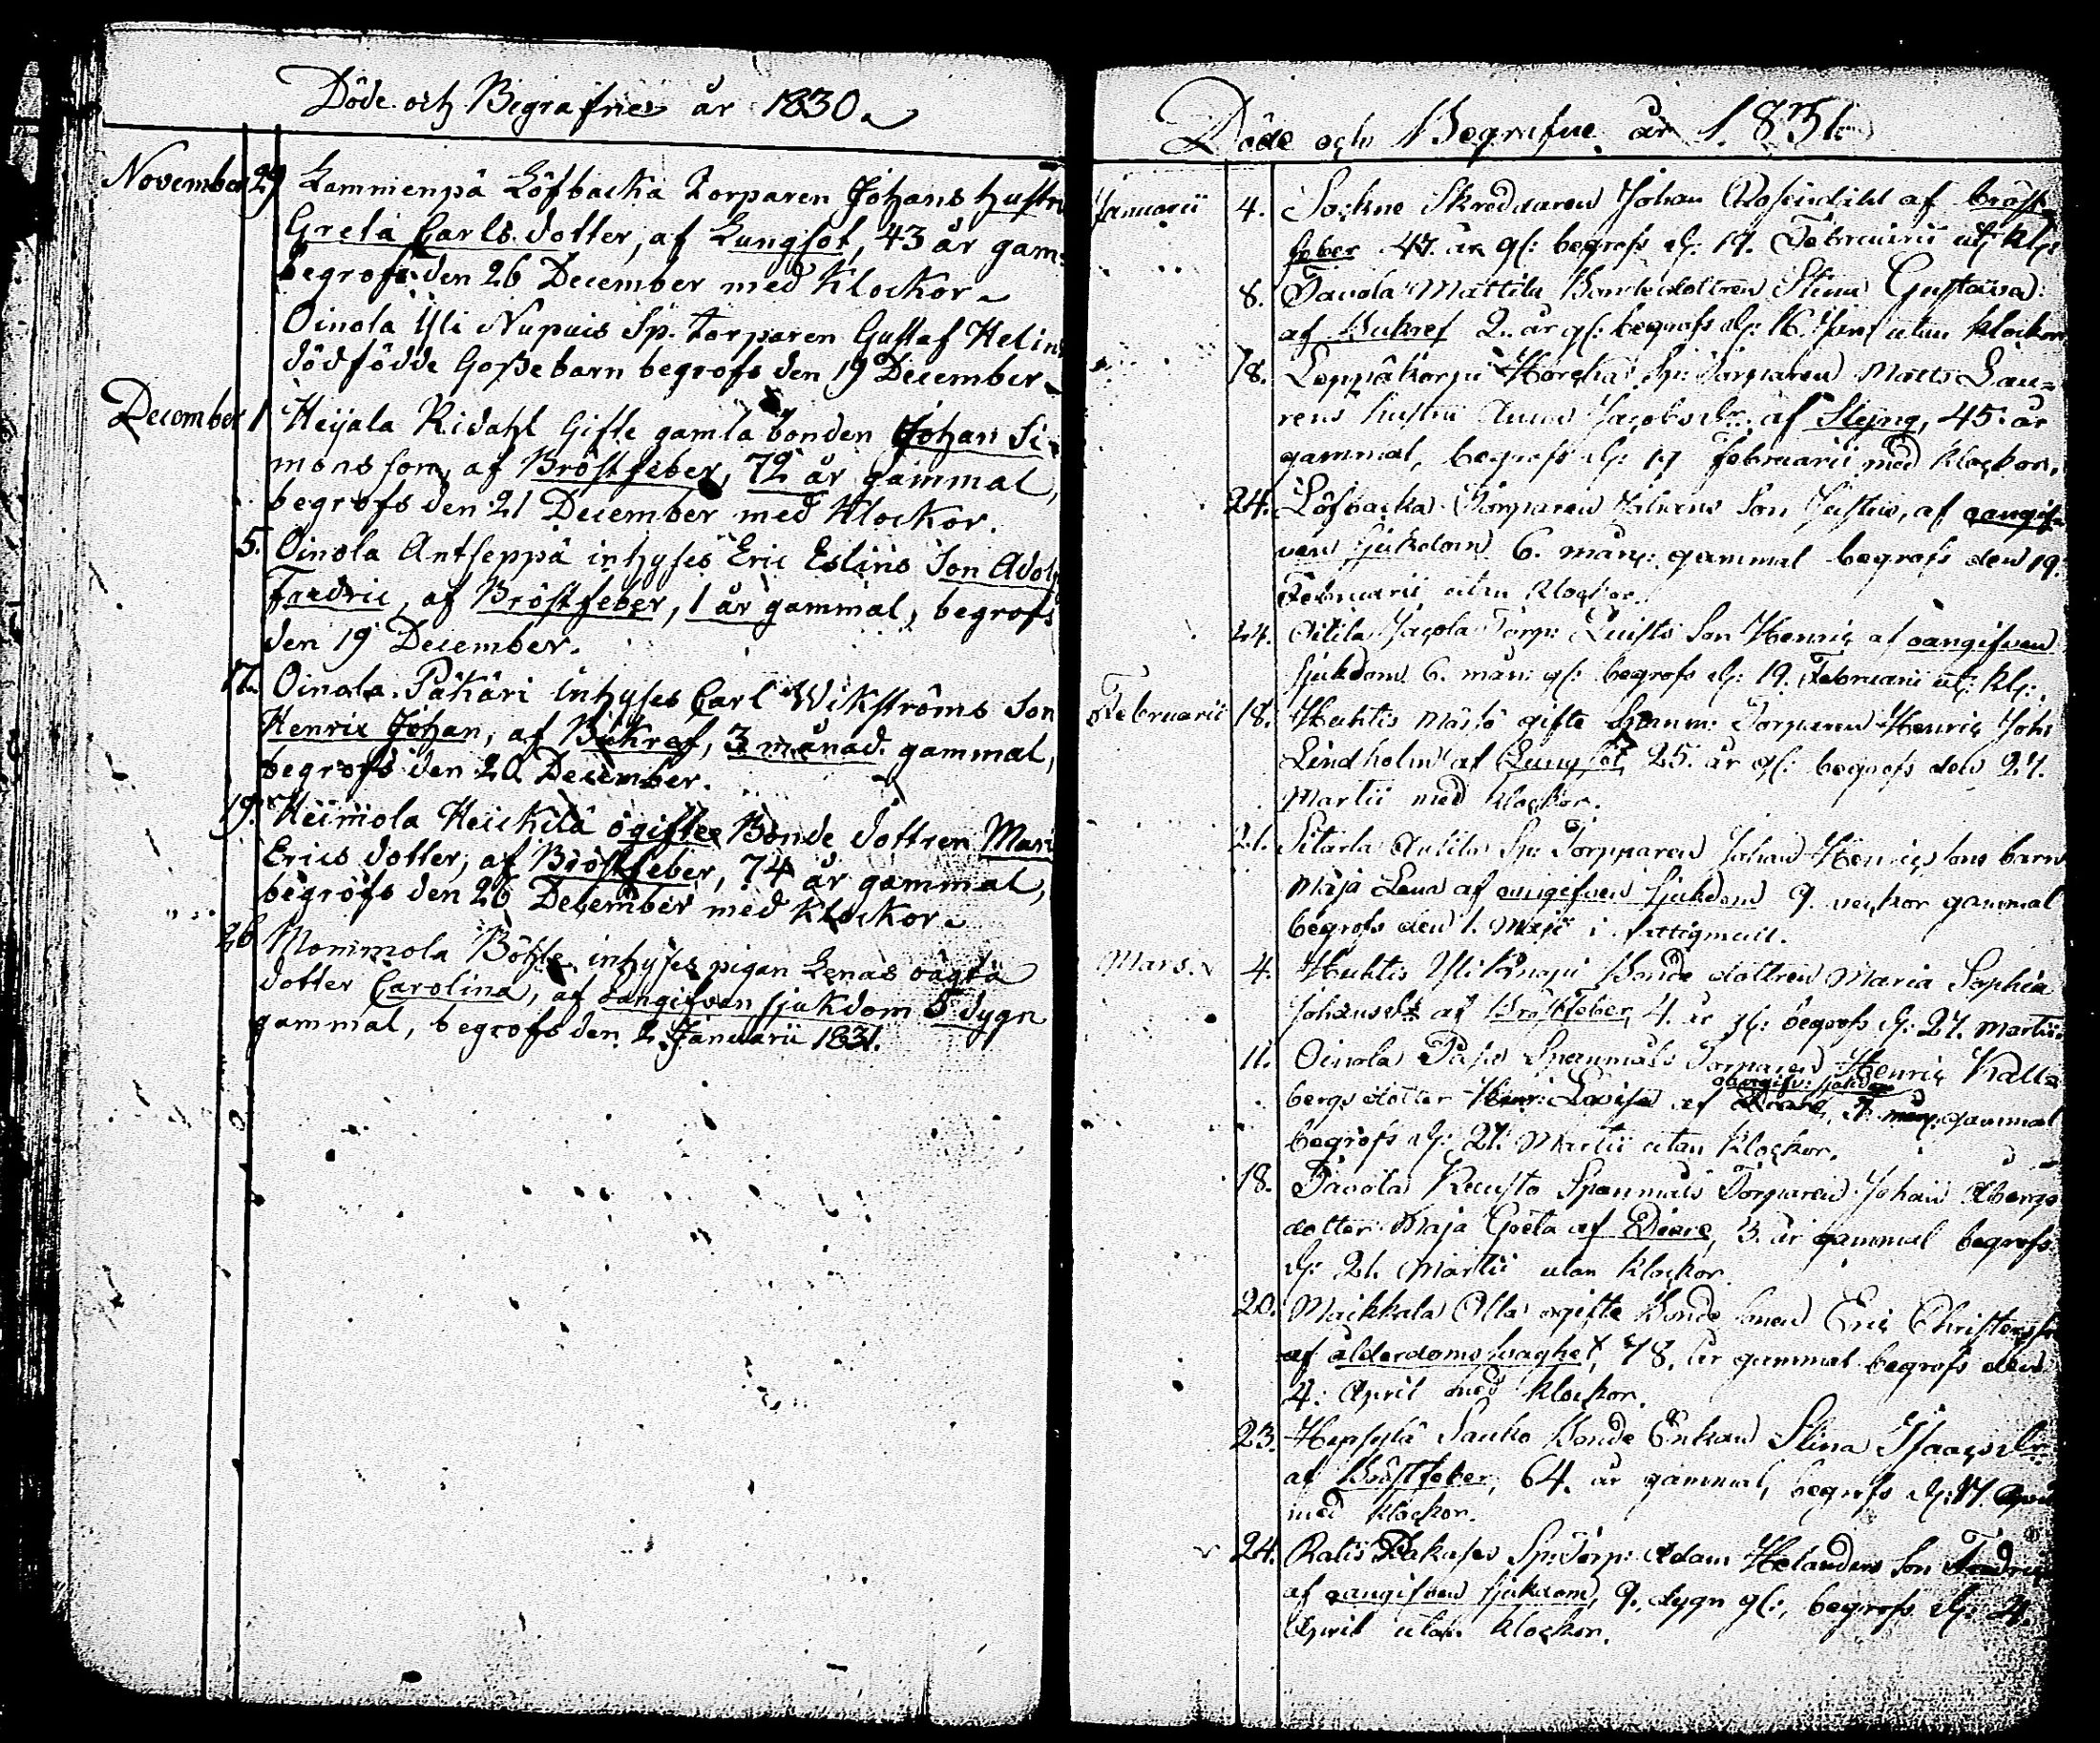 Döde och Begrafne år 1830.
November 29 Lammenpä Löfbacka Torparen Johans hustru
Greta Carls dotter, af Lungsot, 43 år gam:
begrofs den 26 December med Klockor
Oinola Yli Nupuis Sp. torparen Gustaf Helins
dödfödde Gossebarn begrofs den 19 December
December 1 Heijala Ridahl Gifte gamla bonden Johan Si-
monsson, af Bröstfeber, 72 år gammal,
begrofs den 21 December med Klockor.
5. Oinola Antseppä inhyses Eric Eslins Son Adolf
Fredric, af Bröstfeber, 1 år gammal, begrofs
den 19 December.
17. Oinola Päkäri inhyses Carl Wikströms Son
Henric Johan, af Bukref, 3 månad. gammal,
begrofs den 20 December.
19. Heimola Heickilä ogifte Bonde dottren Mari
Erics dotter, af Bröstfeber, 74 år gammal,
begrofs den 26 December med Klockor
26 Mommola Böhle inhyses pigan Lenas oägta
dotter Carolina, af oangifven sjukdom 5 dygn
gammal, begrofs den 2 Januarii 1831.
Döde och Begrafne år 1831.
Januarii 4. Sockne Skreddaren Johan af bröst
feber 47. år gl: begrofs d: 19. Februarii
8. Tavola Mattila Bondedottren Stina Gustava
af Bukref 2. år gl: begrofs d: 16. utan klockor
18. Sp: Torparen Matts Lau=
rens hustru Anna Jacobs dr. af Styng, 45 år
gammal, begrofs d: 19 Februarii med klockor.
24. Löfbacka Torparen Johans Son Justus, af oangif-
ven sjukdom 6. mån: gammal begrofs den 19.
Februarii utan klockor.
24. Jacola Torp: Quists Son Henric af oangifven
sjukdom 6. mån: gl: begrofs d: 19. Februarii ut: kl:
Februarii 18. Huhtis gifte Spanm: Torparen Henric Joh:
Lindholm af Lungsot 25. år gl: begrofs den 27.
Martii med klockor.
21. Anttila Sp: Torpparen Johan Henricssons barn
Maja Lena af oangifven sjukdom 9. veckor gammal
begrofs den 1. Maji i
Mars. 4. Huhtis Yli Knapi Bonde dottren Maria Sophia
Johansdr af Bröstfeber 4. år gl: begrofs d: 27. Martii
11. Oinola Spanmåls Torparen Henric Kall=
oangifv: sjukdom
bergs dotter Lovisa af mån: gammal
begrofs d: 21. Martii utan klockor.
18. Tavola Knusto Spanmåls Torparen Johan Åbergs
dotter Maja Greta af Diare, 3. år gammal begrofs
d: 21. Martii utan klockor.
20. Maikkala Olla ogifte Bonde sonen Eric Christersson
af ålderdoms svaghet, 78. år gammal begrofs den
4. April med klockor.
23. Sauko Bonde Enkan Stina Isaacs dr
af Bröstfeber, 64. år gammal, begrofs d: 17. April
med klockor.
24. Sp: Torp: Adam Helanders Son Fredric
af oangifven sjukdom, 9. dygn gl:, begrofs d: 4.
April utan klockor.